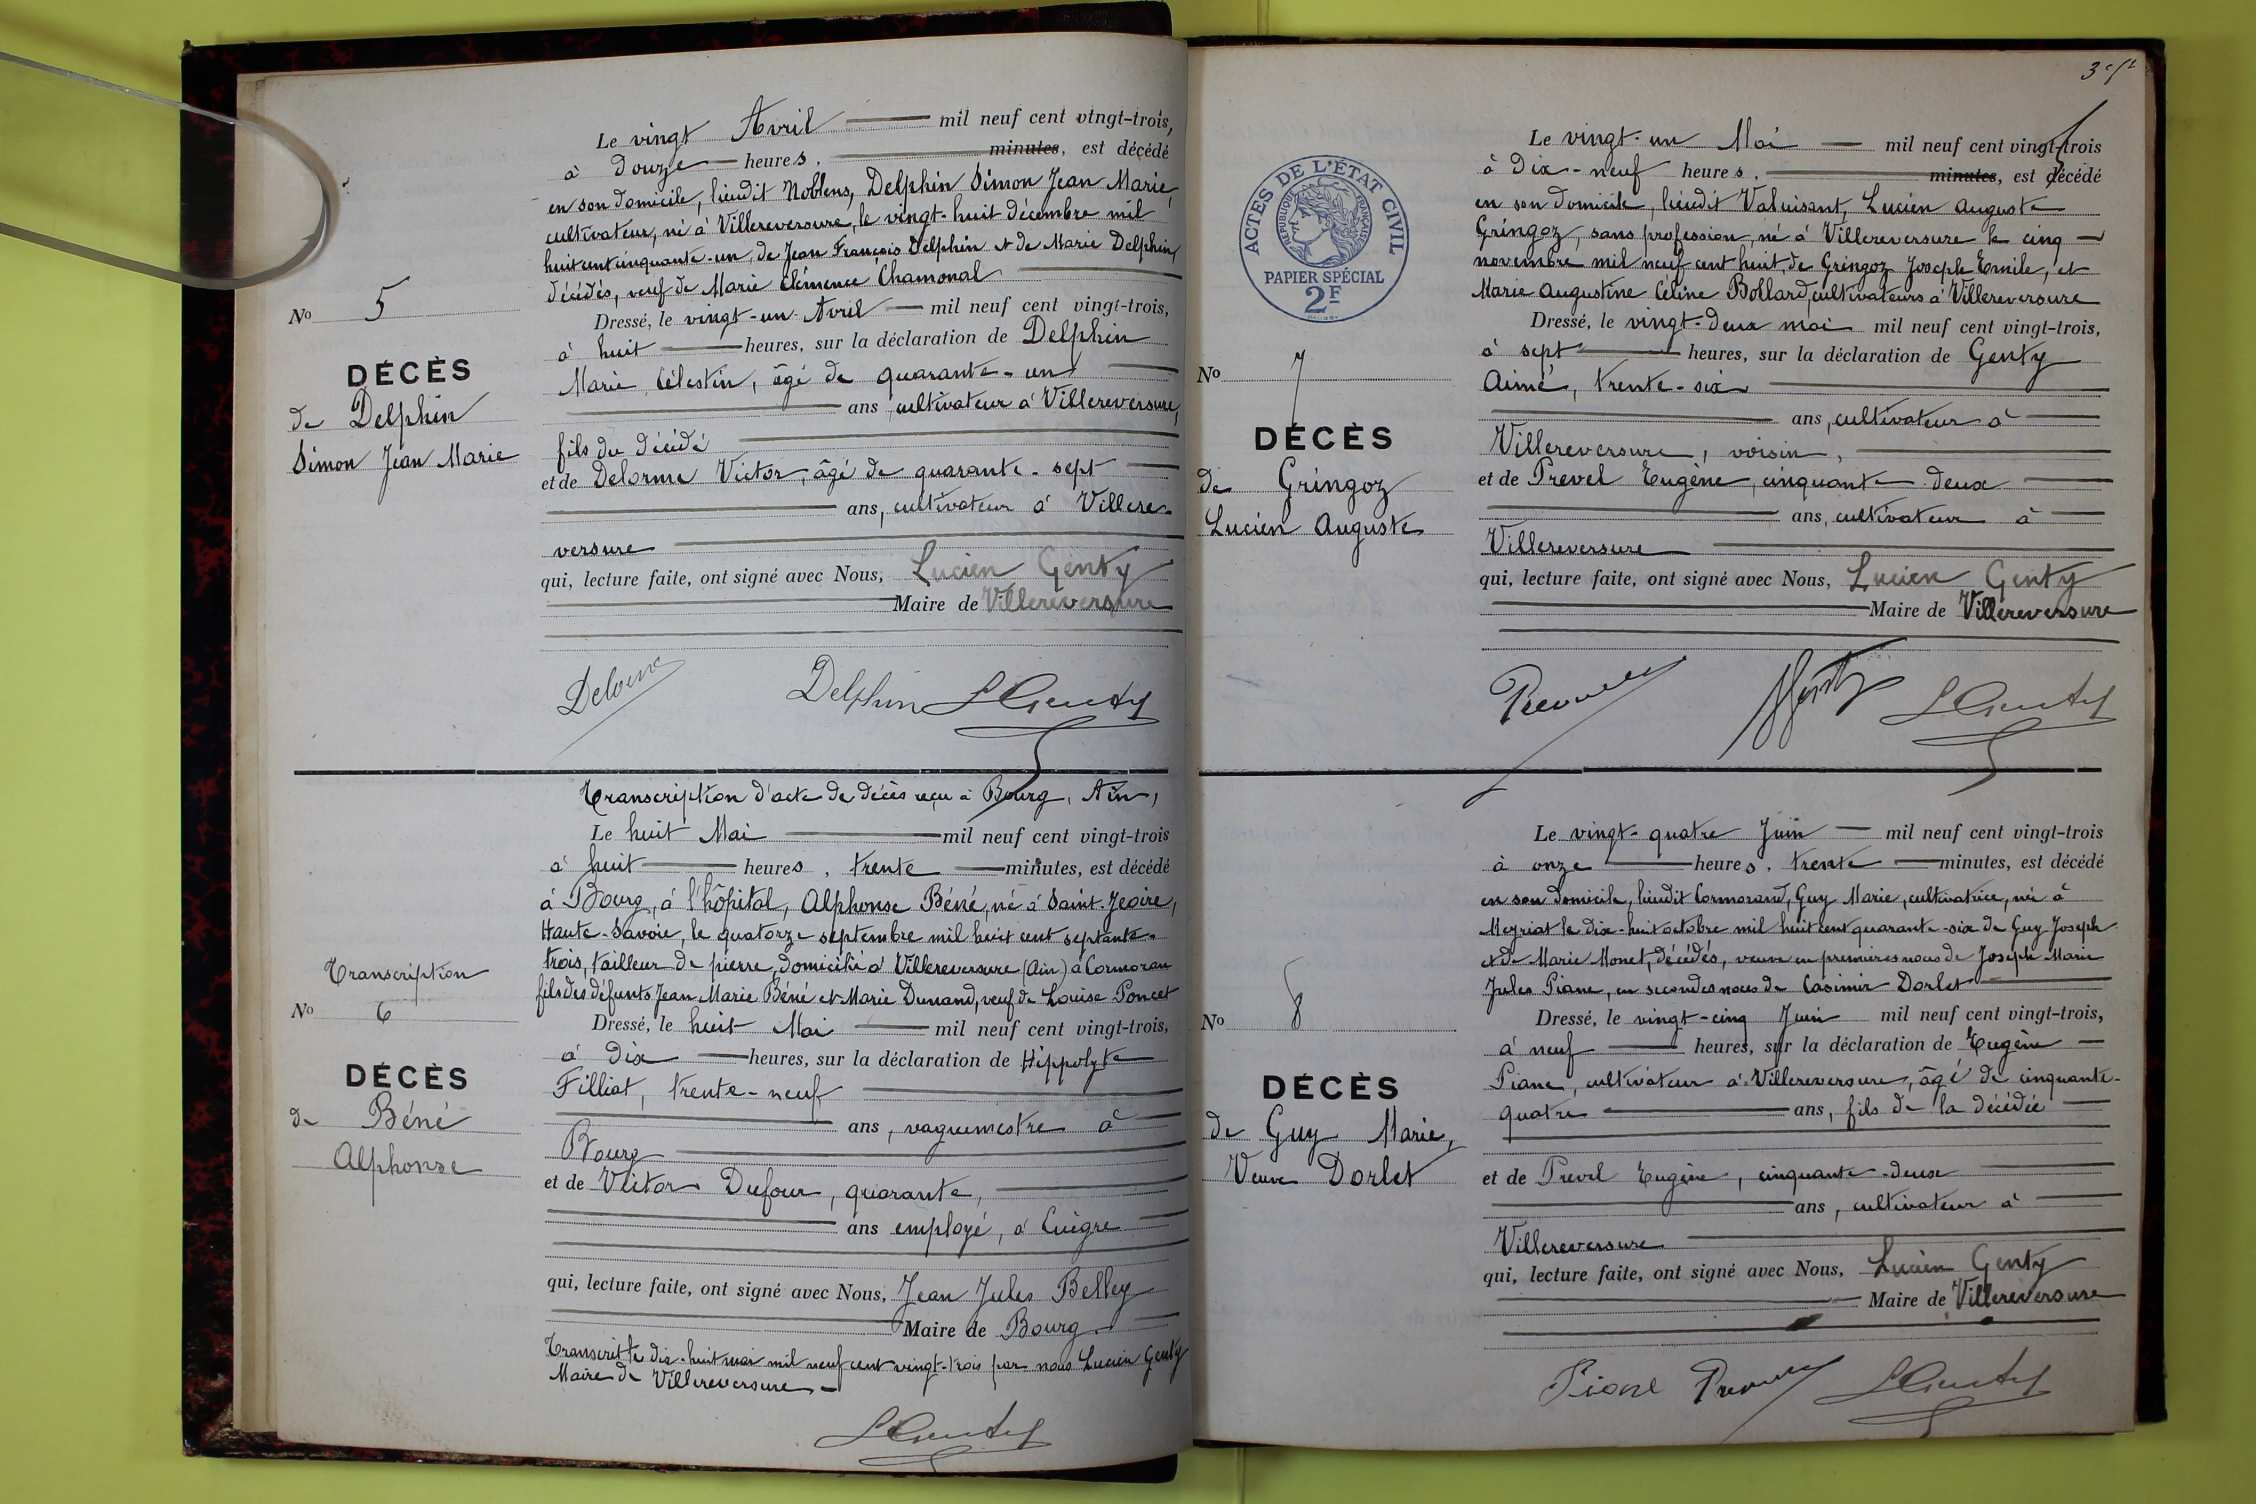 Le vingt Avril mil neuf cent vingt-trois,
à douze heures. minutes, est décédé
en son domicile, lieudit Noblens, Delphin Simon Jean Marie,
cultivateur, né à Villereversure, le vingt-huit décembre mil
huit cent cinquante-un, de Jean François Delphin et de Marie Delphin,
décédés, veuf de Marie Clémence Chamonal
No 5
DÉCÈS
de Delphin
Simon Jean Marie
Dressé, le vingt-un Avril mil neuf cent vingt-trois,
à huit heures, sur la déclaration de Delphin
Marie Célestin, âgé de quarante-un
ans, cultivateur à Villereversure,
fils du décédé
et de Delorme Victor, âgé de quarante-sept
ans, cultivateur à Villere-
versure
qui, lecture faite, ont signé avec Nous, Lucien Genty
Maire de Villereversure
Delorme Delphin LGenty
Transcription d'acte de décès reçu à Bourg, Ain,
Le huit Mai mil neuf cent vingt-trois
à huit heures, trente minutes, est décédé
à Bourg, à l'hôpital, Alphonse Béné, né à Saint-Jeoire,
Haute-Savoie, le quatorze septembre mil huit cent septante-
trois, tailleur de pierre, domicilié à Villereversure (Ain) à Cormoran
fils des défunts Jean Marie Béné et Marie Dunand, veuf de Louise Poncet
Transcription
No 6
DÉCÈS
de Béné
Alphonse
Dressé, le huit Mai mil neuf cent vingt-trois,
à dix heures, sur la déclaration de Hippolyte
Filliat, trente-neuf
ans, vaguemestre à
Bourg
et de Victor Dufour, quarante,
ans employé, à Cuègre
qui, lecture faite, ont signé avec Nous, Jean Jules Belley
Maire de Bourg.
Transcrit le dix-huit mai mil neuf cent vingt-trois par nous Lucien Genty
Maire de Villereversure
LGenty
ACTES DE L'ÉTAT CIVIL
RÉPUBLIQUE FRANÇAISE
PAPIER SPÉCIAL
2F
Le vingt-un Mai mil neuf cent vingt-trois
à dix-neuf heures. minutes, est décédé
en son domicile, lieudit Valuisant, Lucien Auguste
Gringoz, sans profession, né à Villereversure le cinq
novembre mil neuf cent huit, de Gringoz Joseph Emile, et
Marie Augustine Céline Bollard, cultivateurs à Villereversure
No 7
DÉCÈS
de Gringoz
Lucien Auguste
Dressé, le vingt-deux mai mil neuf cent vingt-trois,
à sept heures, sur la déclaration de Genty
Aimé, trente-six
ans, cultivateur à
Villereversure, voisin,
et de Prevel Eugène, cinquante-deux
ans, cultivateur à
Villereversure
qui, lecture faite, ont signé avec Nous, Lucien Genty
Maire de Villereversure
LGenty
Le vingt-quatre Juin mil neuf cent vingt-trois
à onze heures. trente minutes, est décédé
en son domicile, lieudit Cormorand, Guy Marie, cultivatrice, née à
Meyriat le dix-huit octobre mil huit cent quarante-six de Guy Joseph
et de Marie Monet, décédés, veuve en premières noces de Joseph Marie
Jules Piane, en secondes noces de Casimir Dorlet
No 8
DÉCÈS
de Guy Marie,
Veuve Dorlet
Dressé, le vingt-cinq Juin mil neuf cent vingt-trois,
à neuf heures, sur la déclaration de Eugène
Piane, cultivateur à Villereversure, âgé de cinquante-
quatre ans, fils de la décédée
et de Prevel Eugène, cinquante-deux
ans, cultivateur à
Villereversure
qui, lecture faite, ont signé avec Nous, Lucien Genty
Maire de Villereversure
Piane LGenty